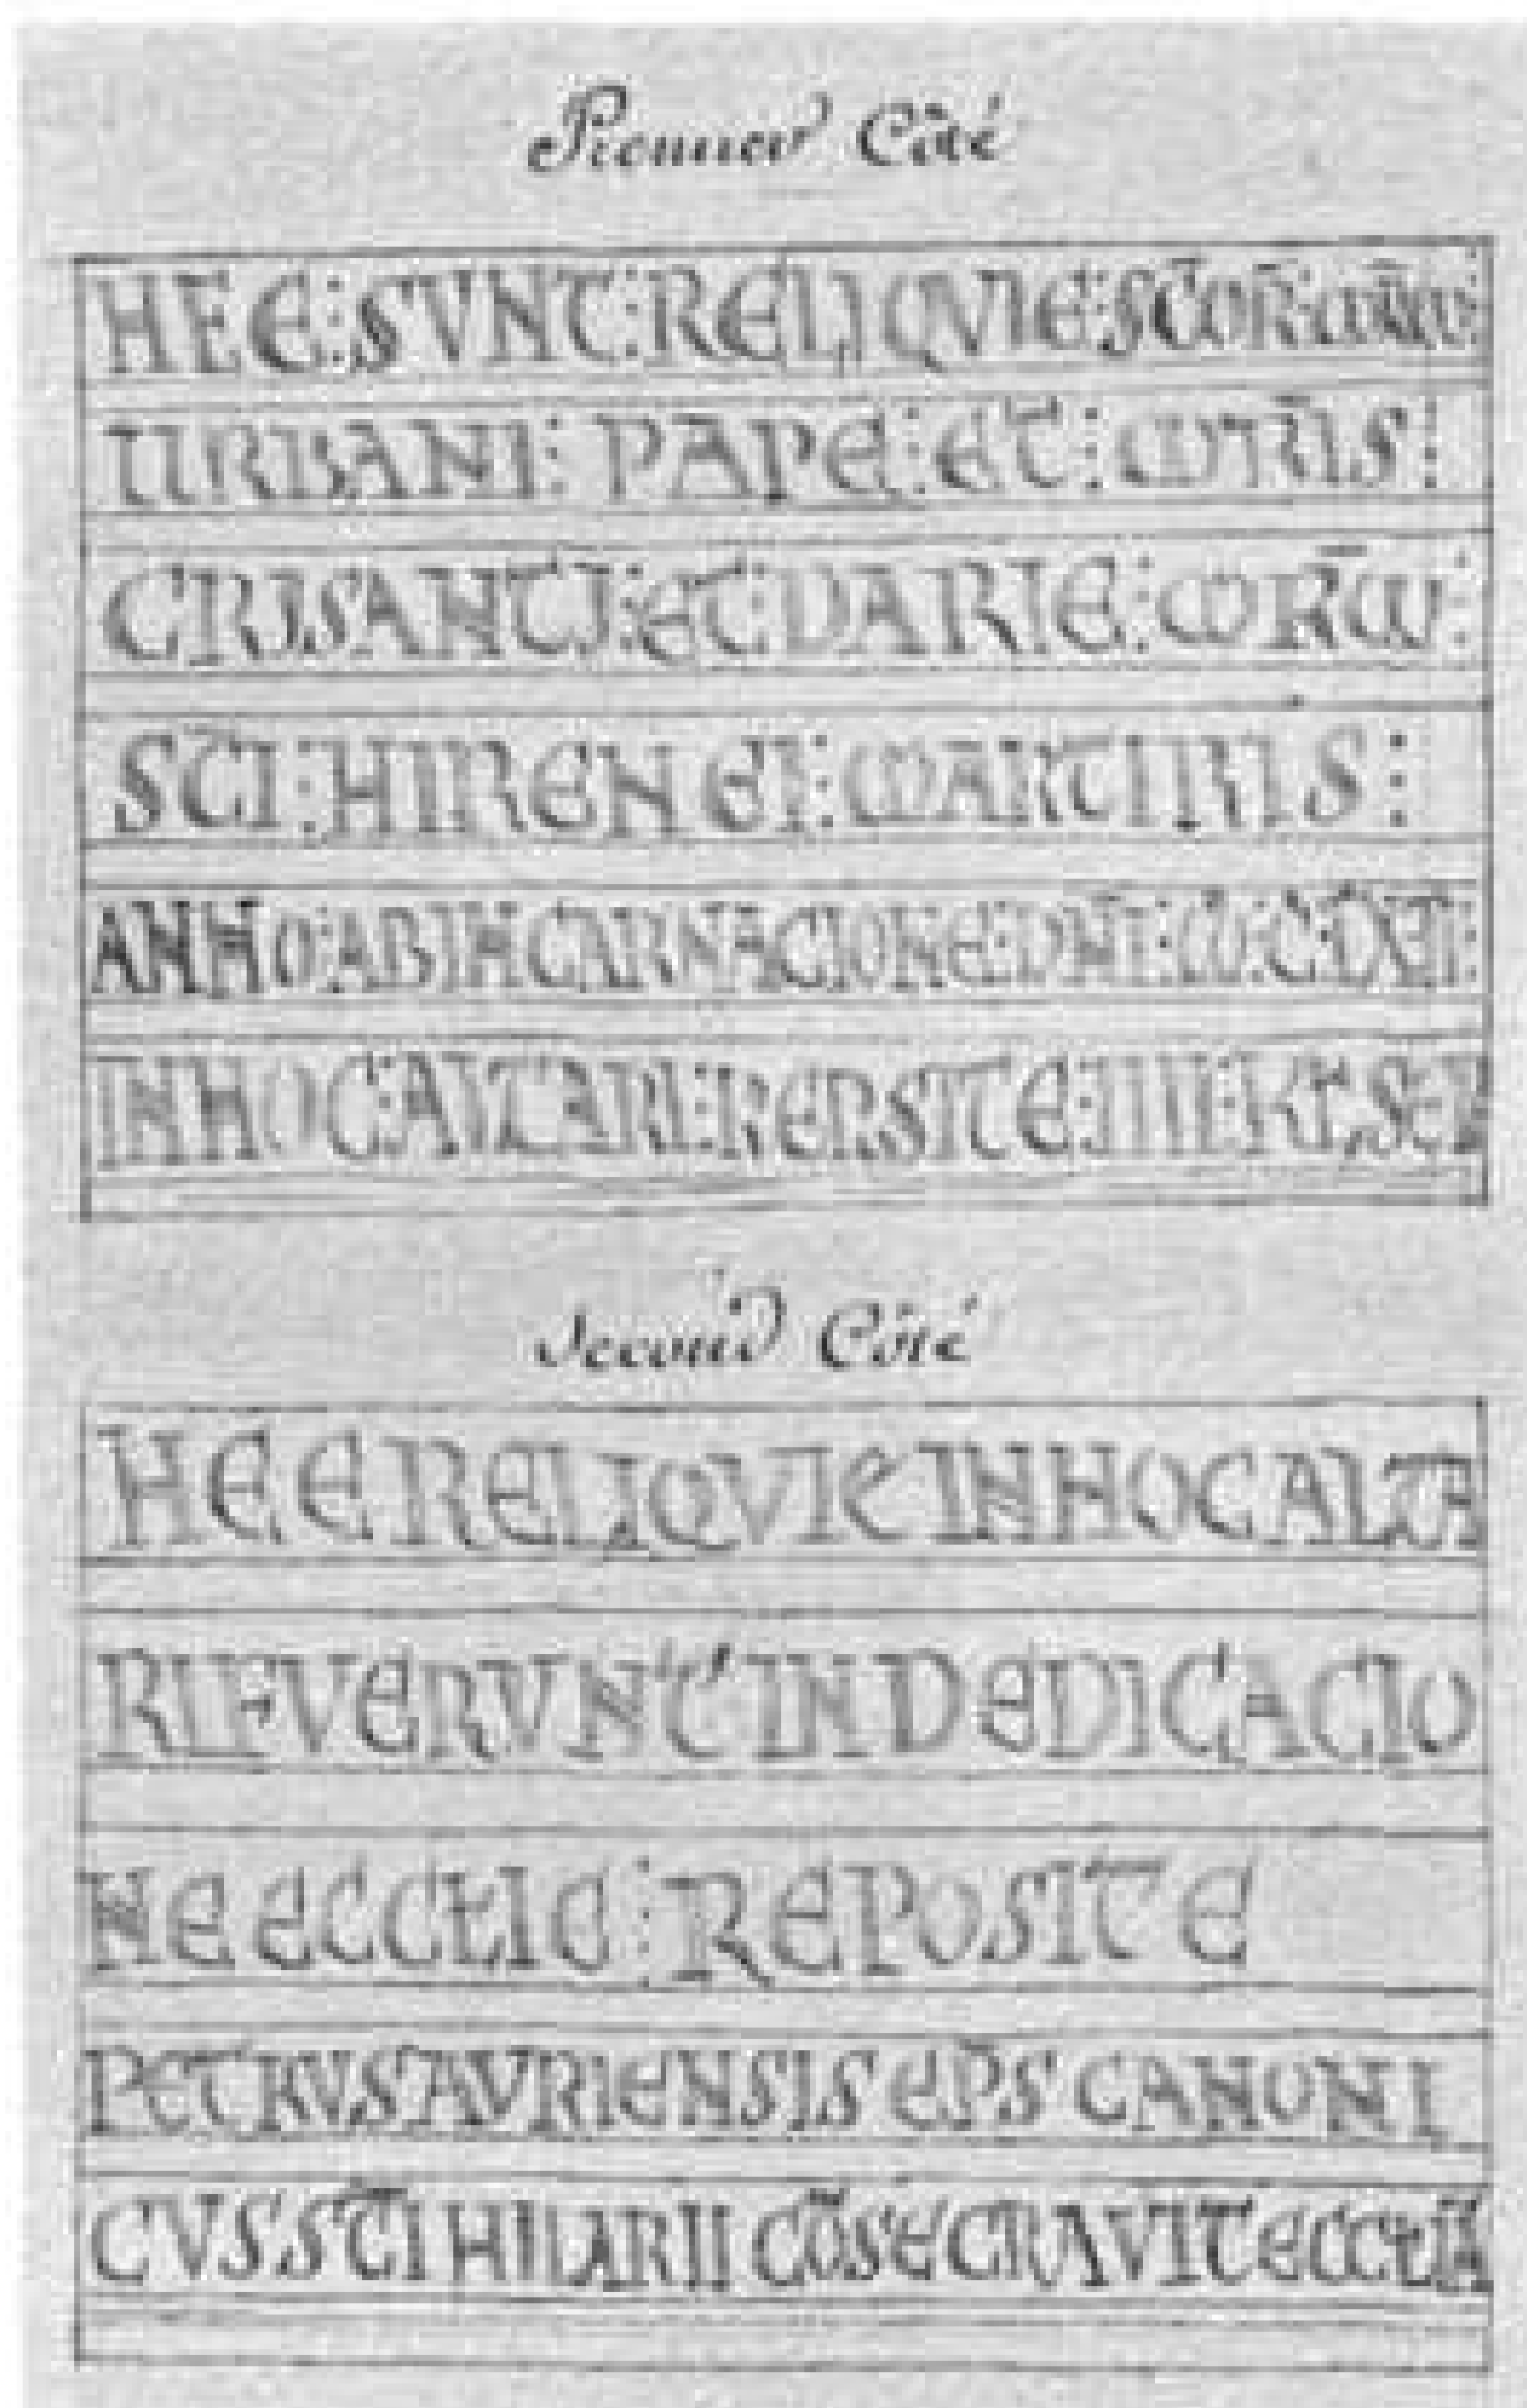 Premier Côté
HEE : SVNT : RELIQVIE : SCOR̄ :
URBANI : PAPE : ET : MR̄IS :
CRISANTI : ET : DARIE : MR̄M :
SC̄I : HIRENEI : MARTIRIS :
ANNO : AB INCARNACIONE : DN̄I : M : C :
IN HOC : ALTARI : REPOSITE : IIII : KL̄ :
Second Côté
HEE RELIQVIE IN HOC ALTA
RI FVERVNT IN DEDICACIO
NE ECCLIE : REPOSITE
PETRVS AVRIENSIS EP̄S CANONI
CVS SC̄I HILARII CŌSECRAVIT ECCLĪA